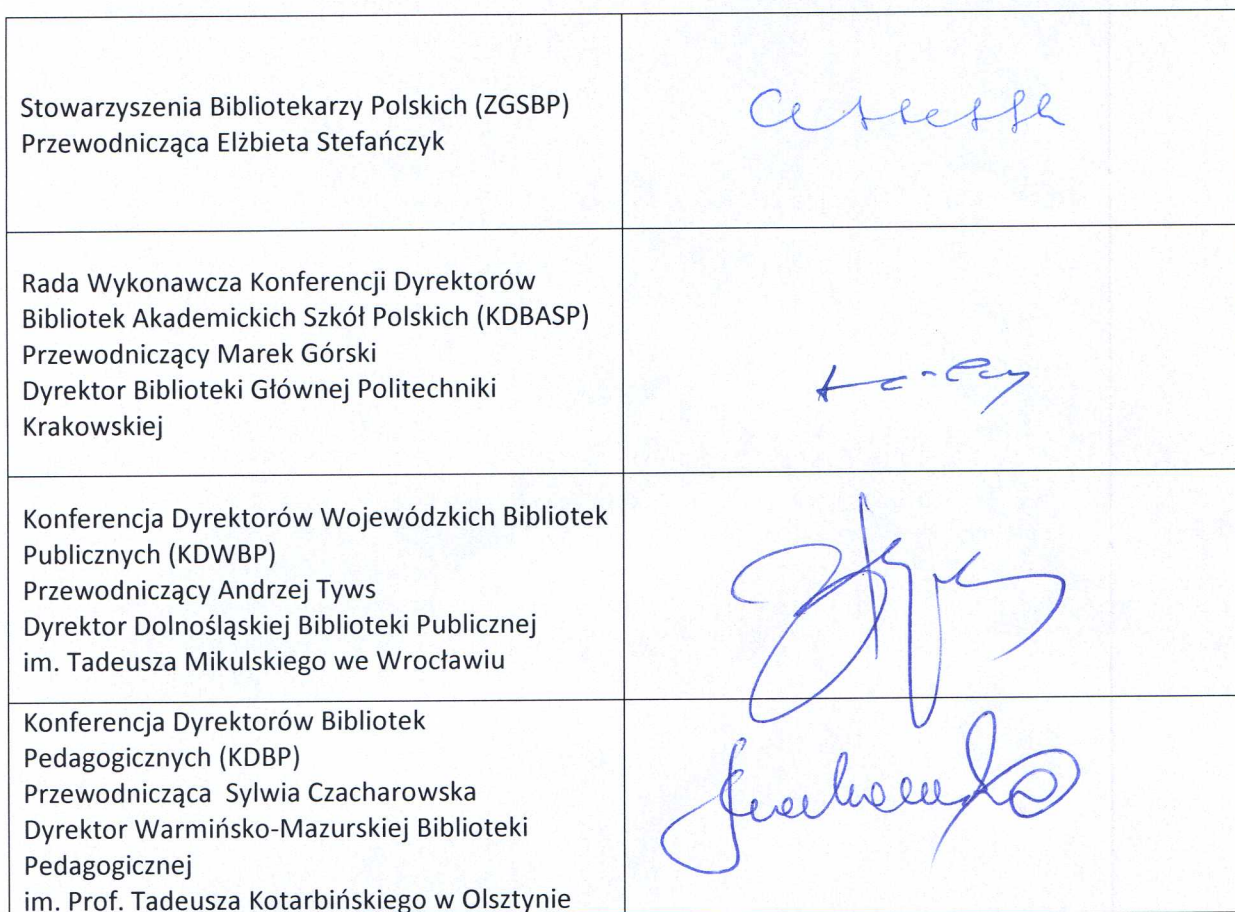 Stowarzyszenia Bibliotekarzy Polskich (ZGSBP)
Przewodnicząca Elżbieta Stefańczyk
Rada Wykonawcza Konferencji Dyrektorów
Bibliotek Akademickich Szkół Polskich (KDBASP)
Przewodniczący Marek Górski
Dyrektor Biblioteki Głównej Politechniki
Krakowskiej
Konferencja Dyrektorów Wojewódzkich Bibliotek
Publicznych (KDWBP)
Przewodniczący Andrzej Tyws
Dyrektor Dolnośląskiej Biblioteki Publicznej
im. Tadeusza Mikulskiego we Wrocławiu
Konferencja Dyrektorów Bibliotek
Pedagogicznych (KDBP)
Przewodnicząca Sylwia Czacharowska
Dyrektor Warmińsko-Mazurskiej Biblioteki
Pedagogicznej
im. Prof. Tadeusza Kotarbińskiego w Olsztynie